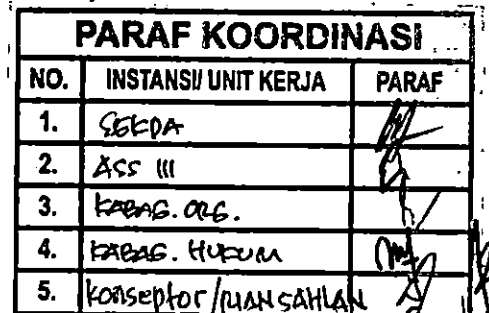 PARAF KOORDINASI
NO. INSTANSI/ UNIT KERJA PARAF
1. SEKDA
2. ASS III
3. KABAG. ORG.
4. KABAG. HUKUM
5. Konseptor / RIAN SAHLAN